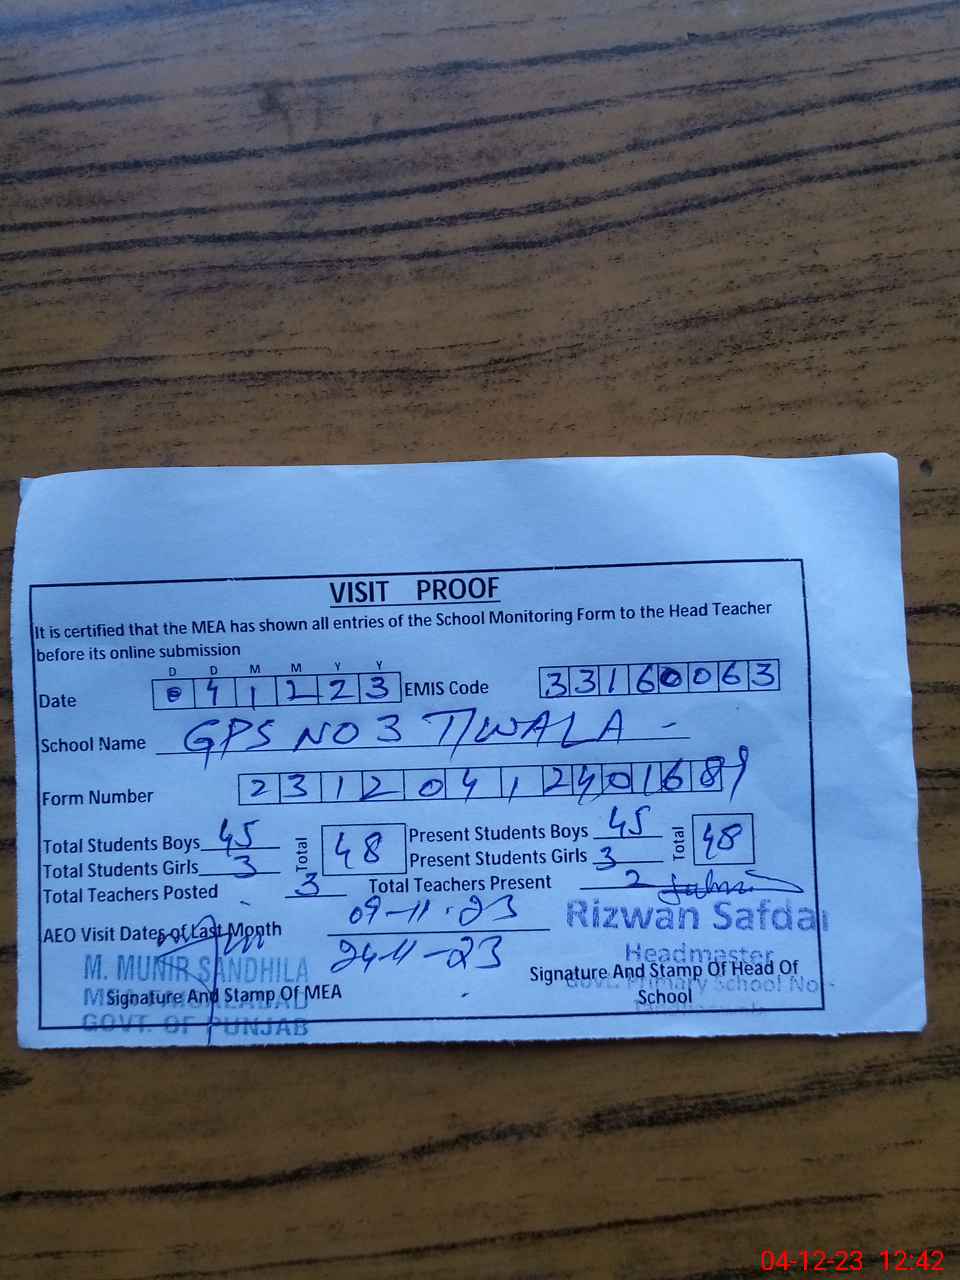 VISIT PROOF
It is certified that the MEA has shown all entries of the School Monitoring Form to the Head Teacher
before its online submission
D D M M Y Y
Date 0 4 1 2 2 3 EMIS Code 3 3 1 6 0 0 6 3
School Name GPS NO 3 T/WALA -
Form Number 2 3 1 2 0 4 1 2 4 0 1 6 8 9
Total Students Boys 45 Total 48 Present Students Boys 45 Total 48
Total Students Girls 3 Present Students Girls 3
Total Teachers Posted 3 Total Teachers Present 2
AEO Visit Dates of Last Month 09-11-23
24-11-23
Rizwan Safdar
Headmaster
Govt. Primary School No
Signature And Stamp Of Head Of
School
M. MUNIR SANDHILA
MEA FAISALABAD
GOVT. OF PUNJAB
Signature And Stamp Of MEA
04-12-23 12:42